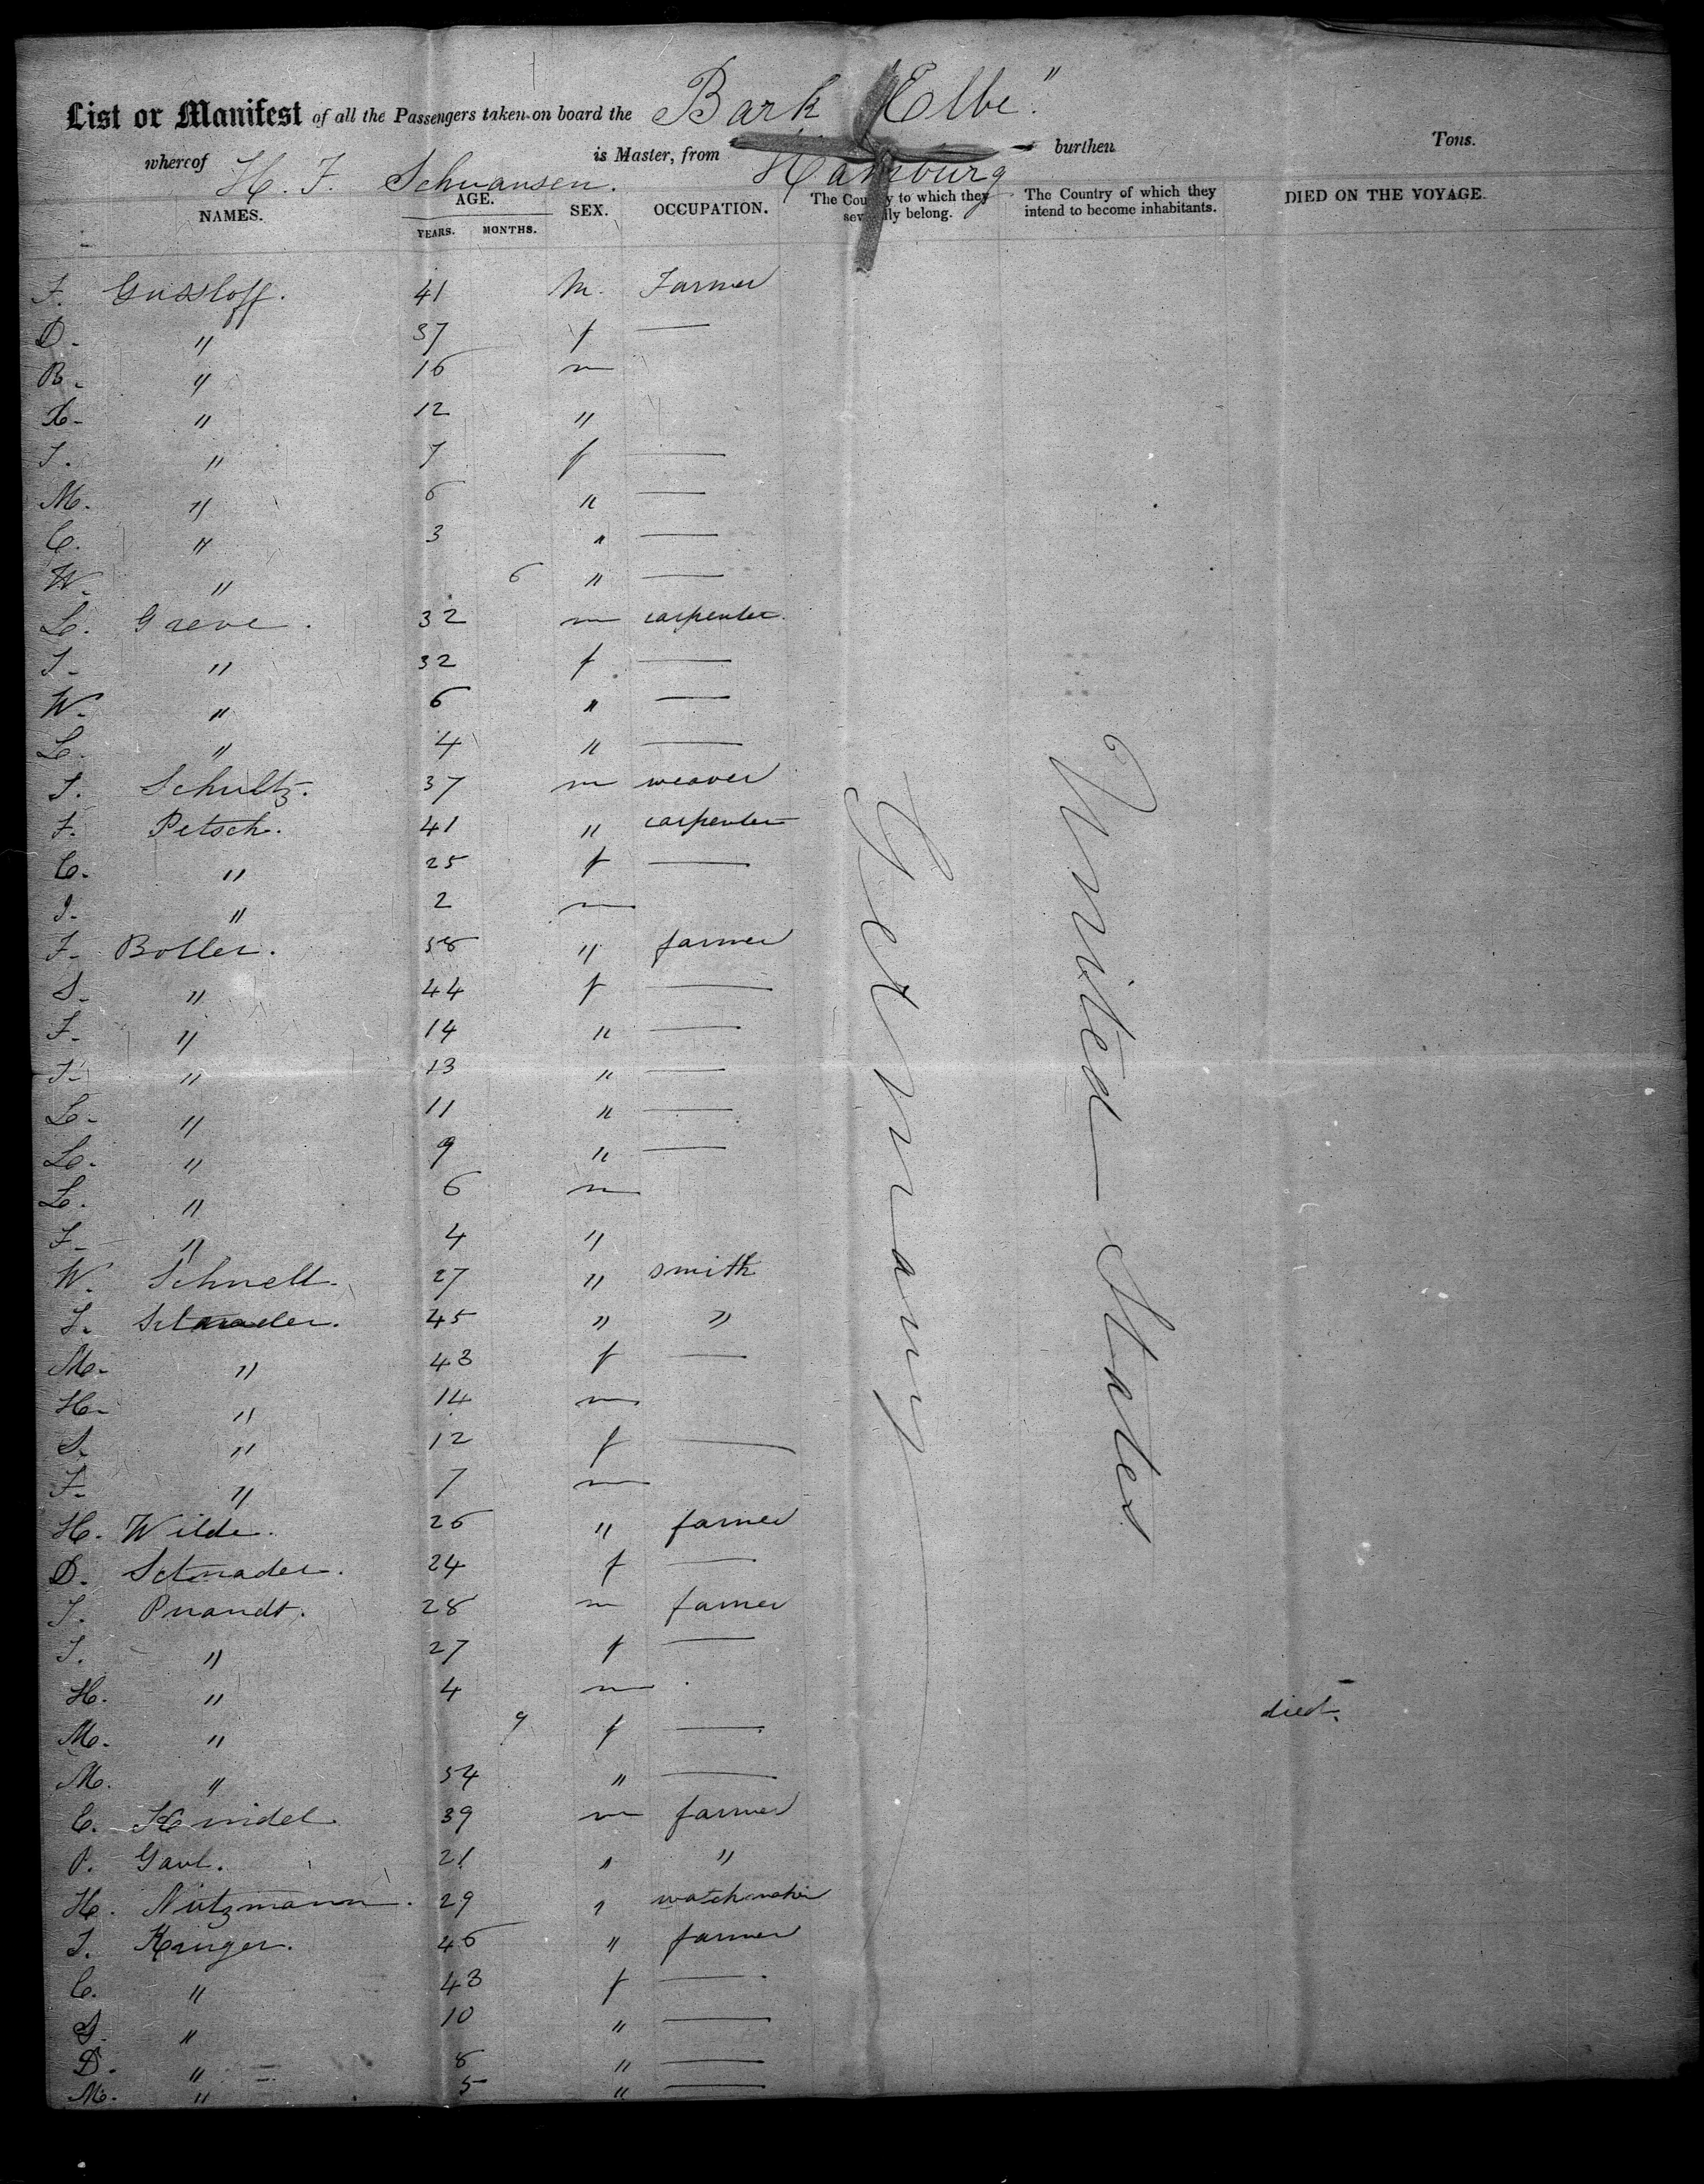 List or Manifest of all the Passengers taken on board the Bark "Elbe"
whereof H. F. Schwansen. is Master, from Hamburg burthen Tons.
NAMES. AGE. YEARS. MONTHS. SEX. OCCUPATION. The Country to which they severally belong. The Country of which they intend to become inhabitants. DIED ON THE VOYAGE.
Germany
United States
F. Gussloff. 41 M. Farmer
D. " 37 f —
B. " 16 m
" 12 "
" 7 f —
M. " 6 " —
C. " 3 " —
W. " 6 " —
L. Greve. 32 m carpenter.
" 32 f —
W. " 6 " —
L. " 4 " —
Schultz. 37 m weaver
F. Petsch. 41 " carpenter
C. " 25 f —
" 2 m
F. Boller. 58 " farmer
S. " 44 f —
F. " 14 " —
" 13 " —
L. " 11 " —
L. " 9 " —
L. " 6 m
F. " 4 "
W. Schnell. 27 " smith
45 " "
M. " 43 f —
H. " 14 m
S. " 12 f —
F. " 7 m
H. Wilde. 26 " farmer
D. 24 f —
28 m farmer
" 27 f —
H. " 4 m
M. " 9 f — died.
M. " 54 " —
C. 39 m farmer
P. Gaul. 21 " "
H. Nutzmann. 29 " watchmaker
Kruger. 46 " farmer
C. " 43 f —
" 10 " —
D. " 8 " —
M. " 5 " —